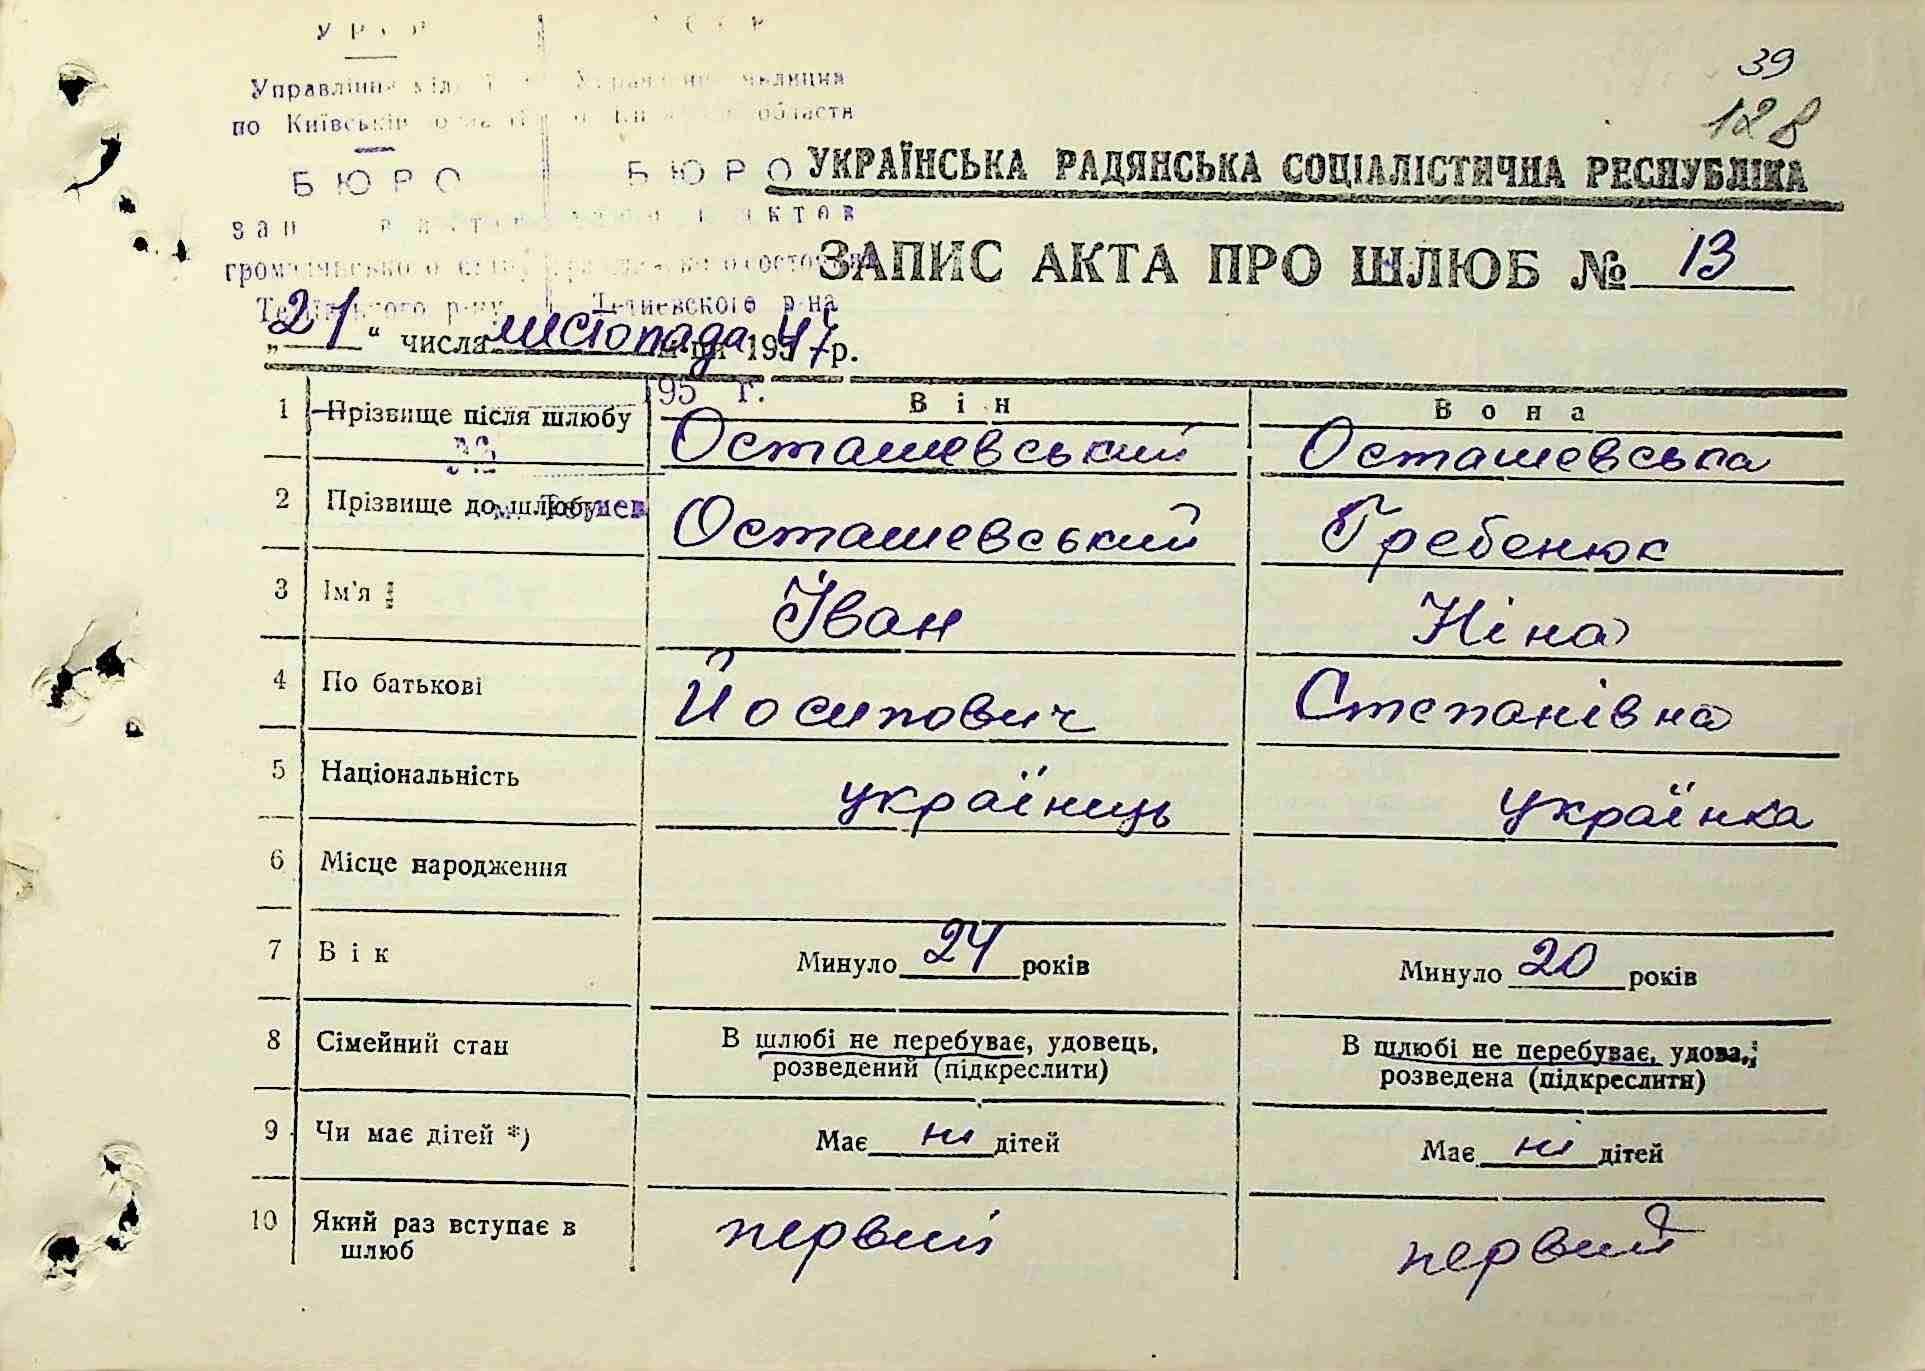 39
12 в
Управління по Київській
области
БЮРО БЮРО
УКРАЇНСЬКА РАДЯНСЬКА СОЦІАЛІСТИЧНА РЕСПУБЛІКА
актов
ЗАПИС АКТА ПРО ШЛЮБ № 13
р-ну Тетиевского р-на
„21“ числа листопада м-ця 1947 р.
195 г.
Він Вона
1 Прізвище після шлюбу Осташевський Осташевська
2 Прізвище до шлюбу Осташевський Гребенюк
3 Ім'я Іван Ніна
4 По батькові Йосипович Степанівна
5 Національність україниць українка
6 Місце народження
7 Вік Минуло 24 років Минуло 20 років
8 Сімейний стан В шлюбі не перебуває, удовець, розведений (підкреслити) В шлюбі не перебуває, удова, розведена (підкреслити)
9 Чи має дітей *) Має ні дітей Має ні дітей
10 Який раз вступає в шлюб первий первий